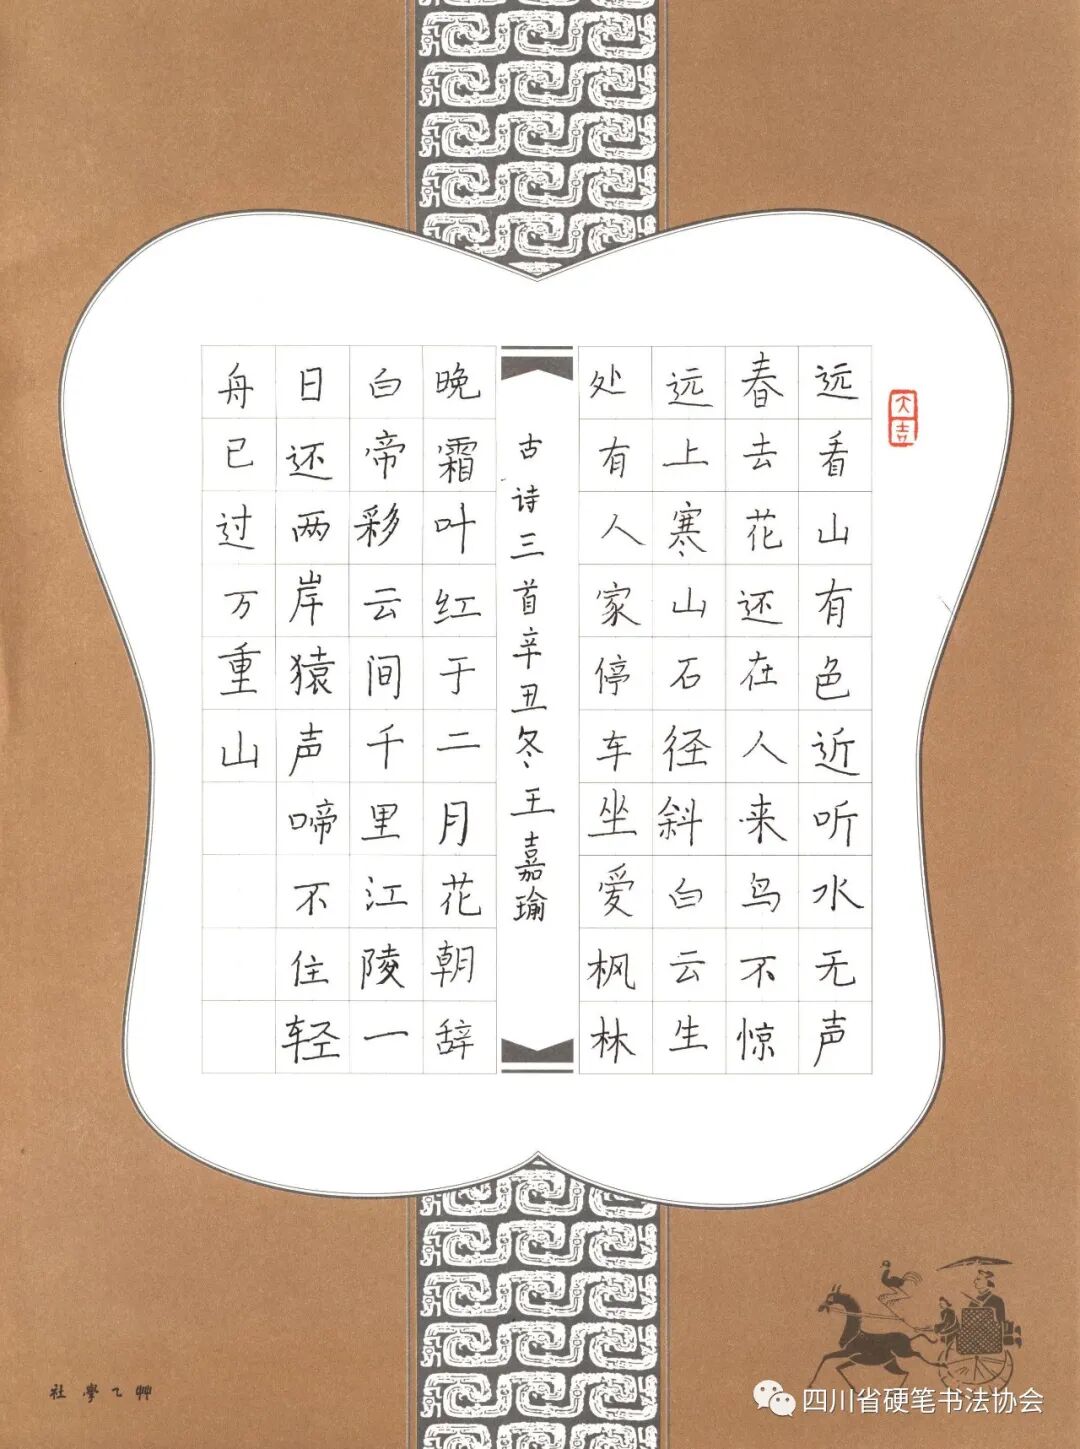 远看山有色近听水无声
春去花还在人来鸟不惊
远上寒山石径斜白云生
处有人家停车坐爱枫林
古诗三首辛丑冬王嘉瑜
晚霜叶红于二月花朝辞
白帝彩云间千里江陵一
日还两岸猿声啼不住轻
舟已过万重山
大吉
艸乙學社
四川省硬笔书法协会